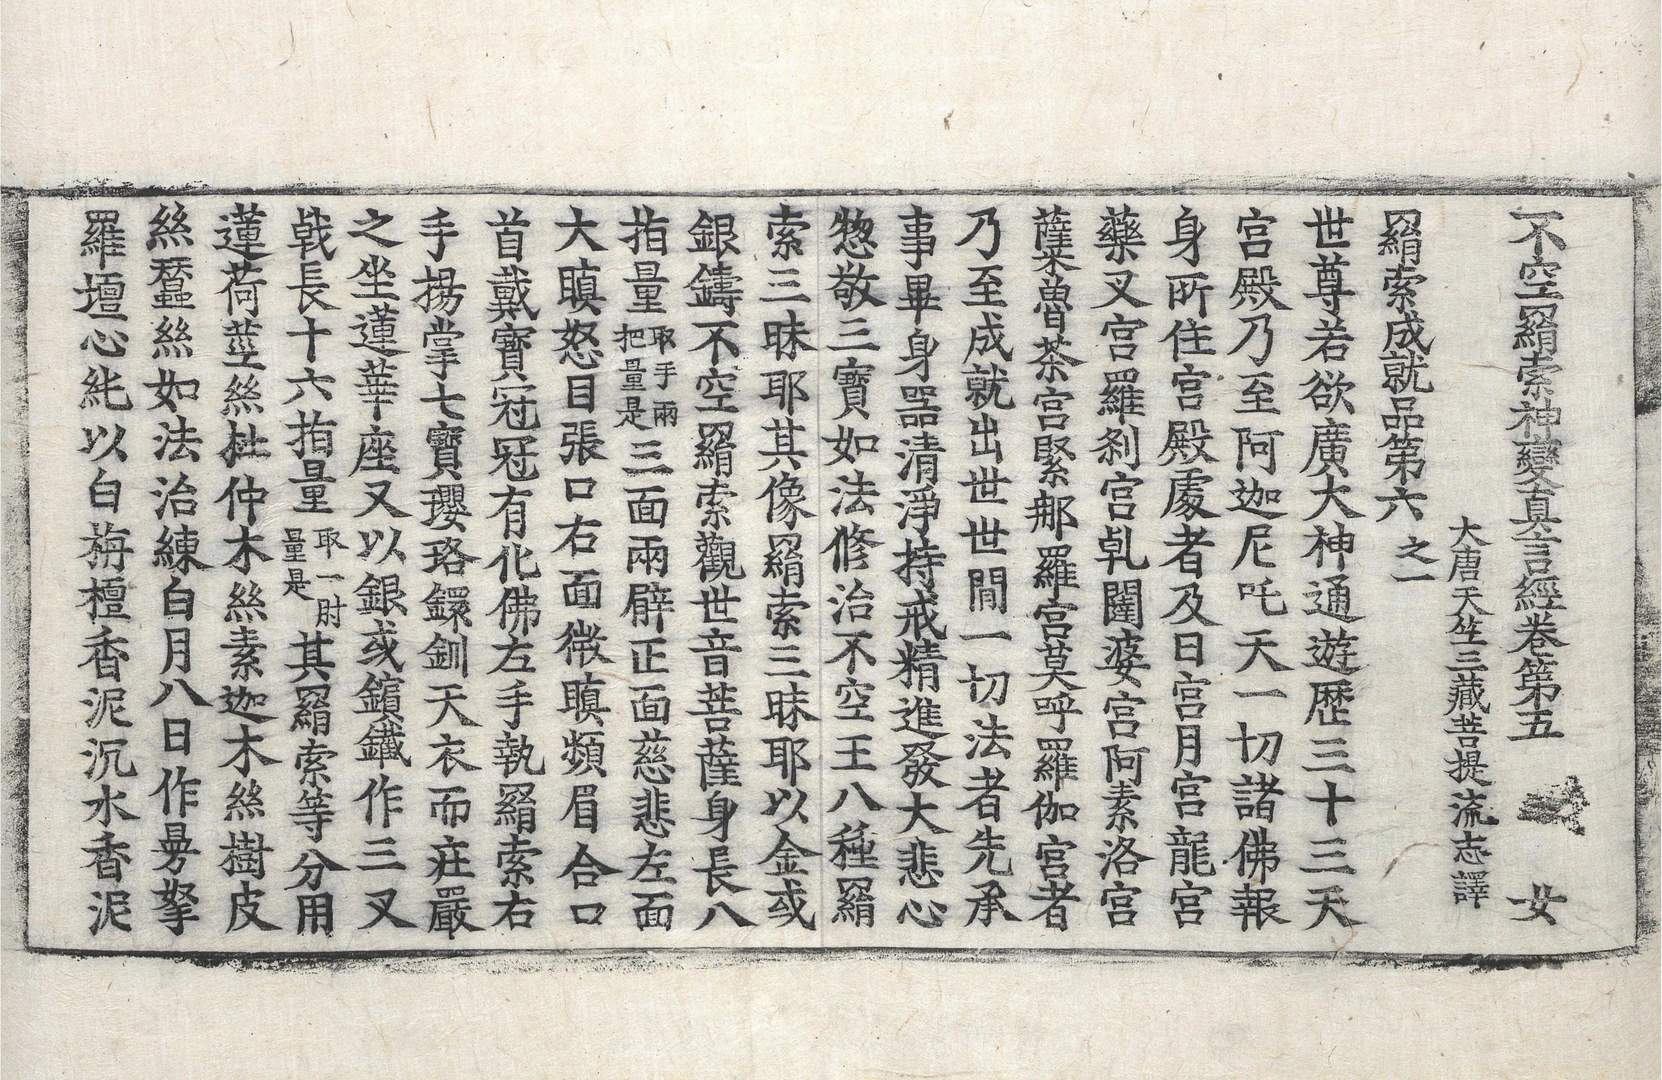 不空羂索神變真言經卷第五 女
大唐天竺三藏菩提流志譯
羂索成就品第六之一
世尊若欲廣大神通遊歷三十三天
宮殿乃至阿迦尼吒天一切諸佛報
身所住宮殿處者及日宮月宮龍宮
藥叉宮羅剎宮乹闥婆宮阿素洛宮
薩米魯荼宮緊那羅宮莫呼羅伽宮者
乃至成就出世世間一切法者先承
事畢身器清淨持戒精進發大悲心
惣敬三寶如法修治不空王八種羂
索三昧耶其像羂索三昧耶以金或
銀鑄不空羂索觀世音菩薩身長八
指量取手兩把量是三面兩臂正面慈悲左面
大瞋怒目張口右面微瞋頻眉合口
首戴寶冠冠有化佛左手執羂索右
手揚掌七寶瓔珞鐶釧天衣而莊嚴
之坐蓮華座又以銀或鑌鐵作三叉
戟長十六指量取一肘量是其羂索等分用
蓮荷莖絲杜仲木絲素迦木絲樹皮
絲蠶絲如法治練白月八日作曼拏
羅壇心純以白栴檀香泥沉水香泥